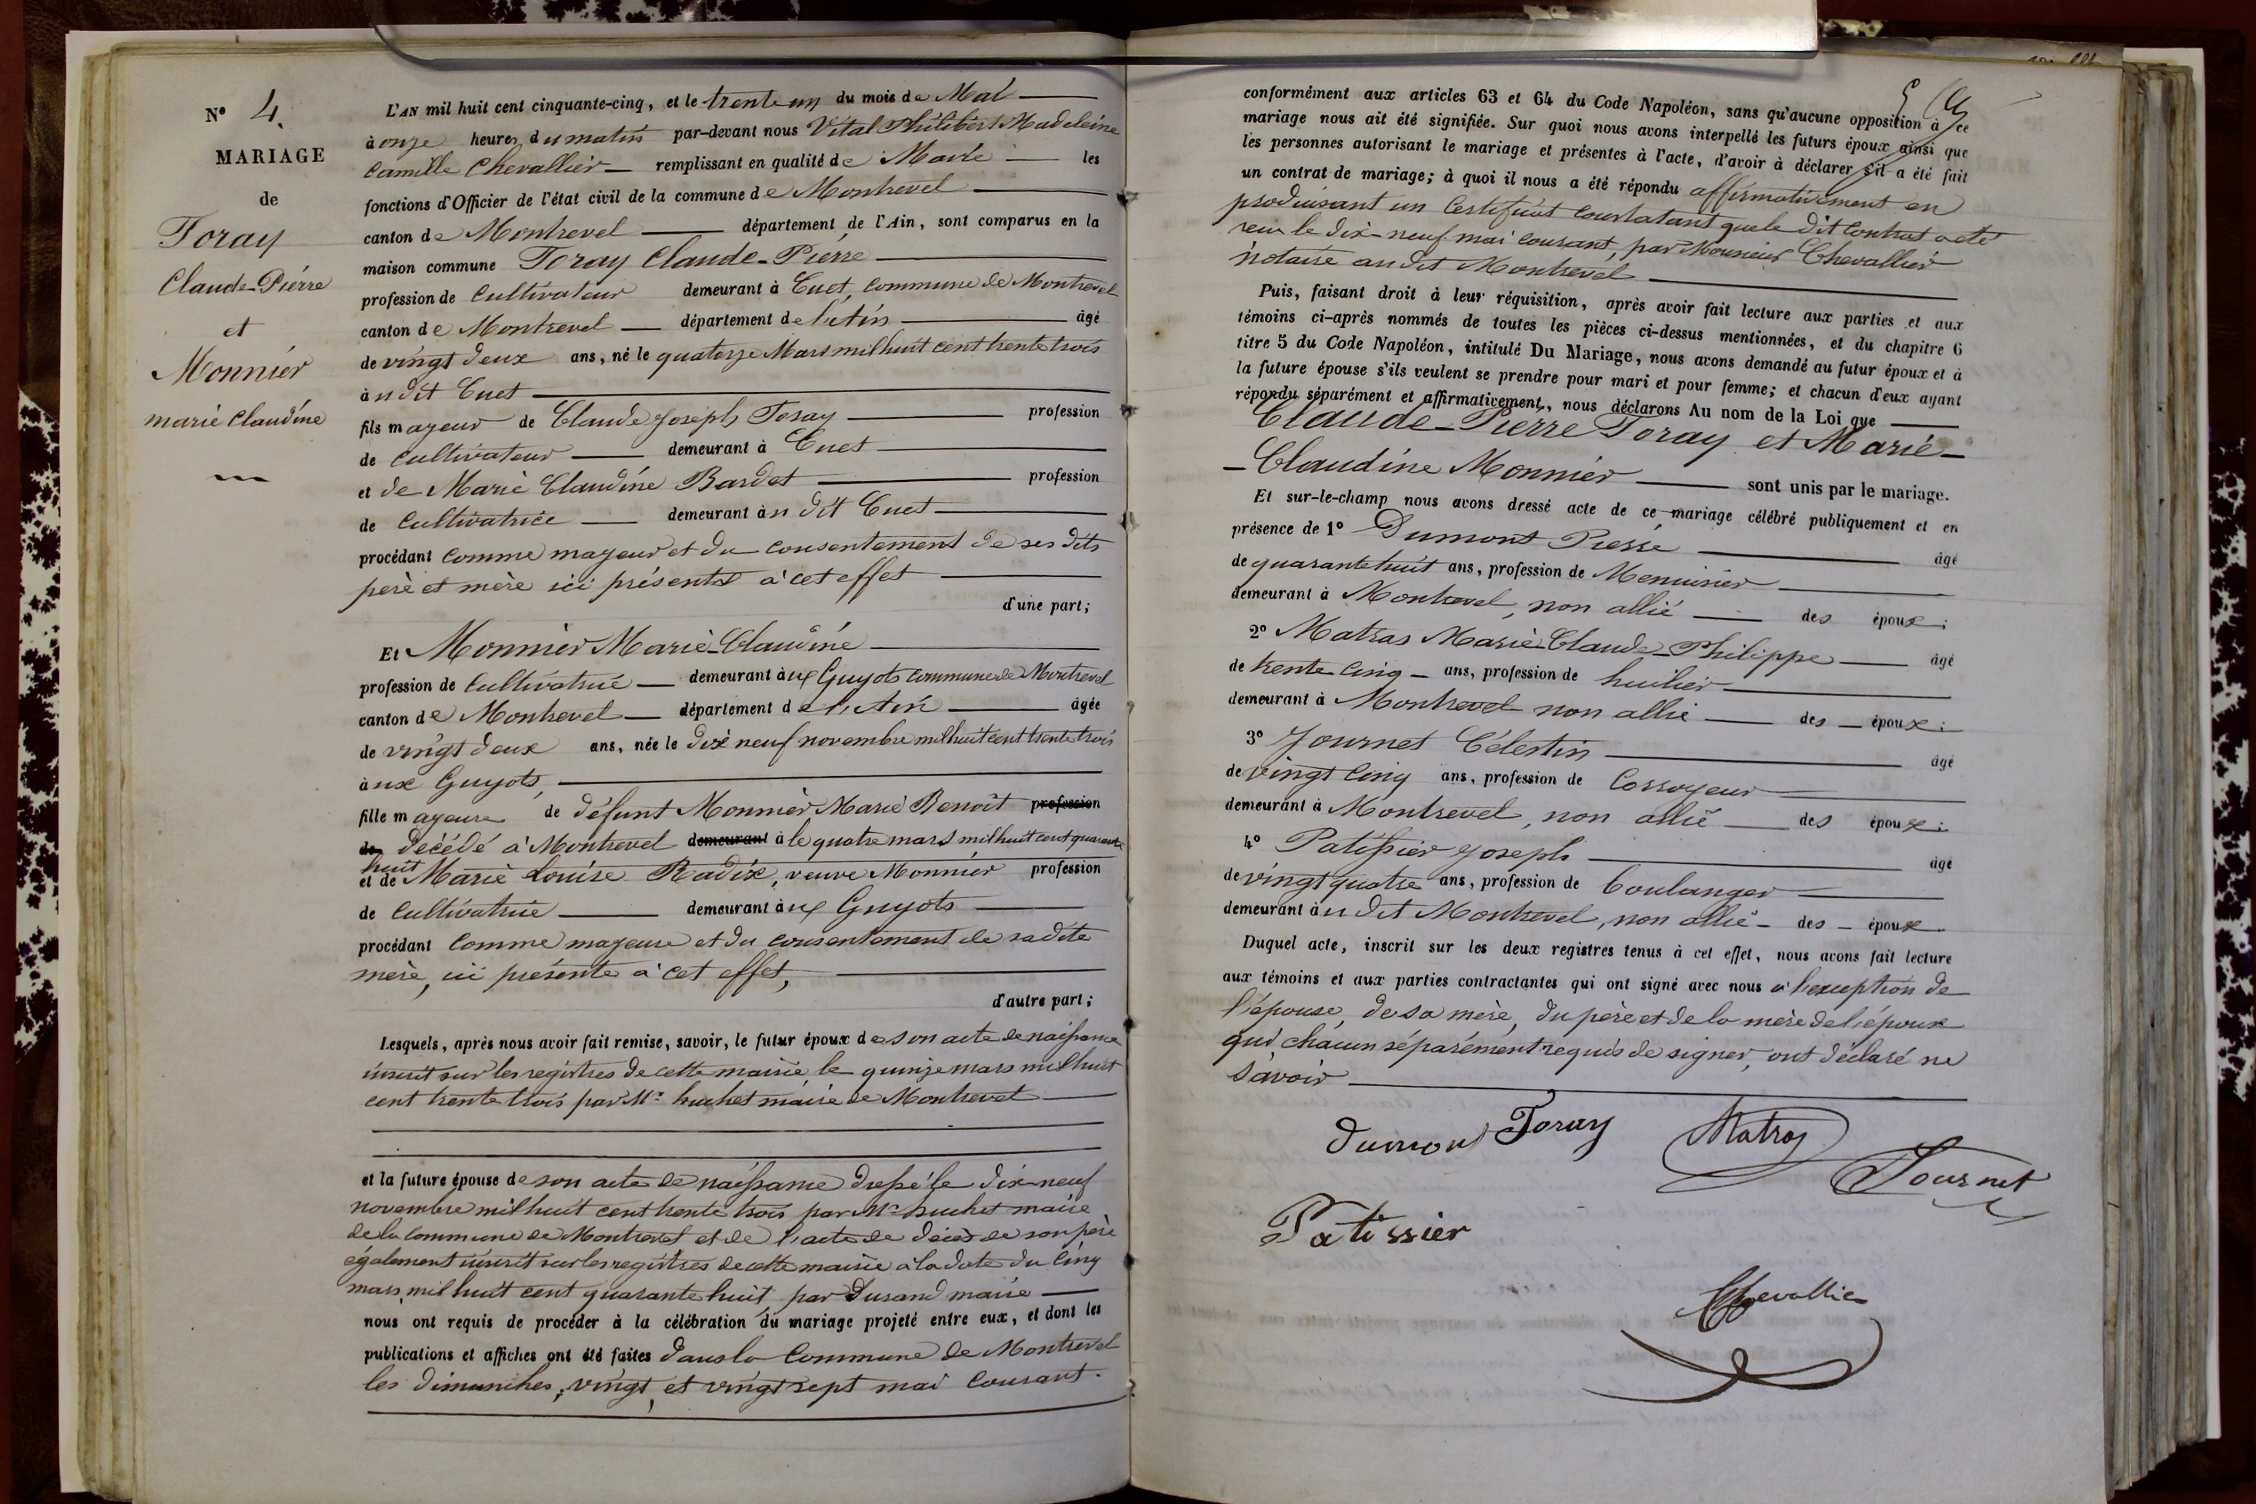 N° 4.
MARIAGE
de
Foray
Claude-Pierre
et
Monnier
marie Claudine
L'AN mil huit cent cinquante-cinq, et le trente un du mois de Mai
à onze heures du matin par-devant nous Vital Philibert Madeleine
Camille Chevallier remplissant en qualité de Maire les
fonctions d'Officier de l'état civil de la commune de Montrevel
canton de Montrevel département de l'Ain, sont comparus en la
maison commune Foray Claude-Pierre
profession de Cultivateur demeurant à Cuet, commune de Montrevel
canton de Montrevel département de l'Ain âgé
de vingt deux ans, né le quatorze Mars mil huit cent trente trois
àu dit Cuet
fils mayeur de Claude Joseph Foray profession
de cultivateur demeurant à Cuet
et de Marie Claudine Bardet profession
de cultivatrice demeurant àu dit Cuet
procédant comme mayeur et du consentement de ses dits
père et mère ici présents à cet effet
d'une part;
Et Monnier Marie-Claudine
profession de Cultivatrice demeurant àux Guyots commune de Montrevel
canton de Montrevel département de l'Ain âgée
de vingt deux ans, née le dix neuf novembre mil huit cent trente trois
àux Guyots,
fille mayeure de défunt Monnier, Marie Benoît profession
de décédé à Montrevel demeurant à le quatre mars mil huit cent quarante
huit
et de Marie Louise Radix, veuve Monnier profession
de Cultivatrice demeurant àux Guyots
procédant comme mayeure et du consentement de sa dite
mère, ici présente à cet effet,
d'autre part;
Lesquels, après nous avoir fait remise, savoir, le futur époux de son acte de naissance
inscrit sur les registres de cette mairie le quinze mars mil huit
cent trente trois par Mr. huchet maire de Montrevel
et la future épouse de son acte de naissance dressé le dix-neuf
novembre mil huit cent trente trois par Mr. huchet maire
de la Commune de Montrevel et de l'acte de décès de son père
également inscrit sur les registres de cette mairie à la date du cinq
mars mil huit cent quarante huit, par Durand maire
nous ont requis de procéder à la célébration du mariage projeté entre eux, et dont les
publications et affiches ont été faites dans la Commune de Montrevel
les dimanches, vingt et vingt sept mai courant.
conformément aux articles 63 et 64 du Code Napoléon, sans qu'aucune opposition à ce
mariage nous ait été signifiée. Sur quoi nous avons interpellé les futurs époux ainsi que
les personnes autorisant le mariage et présentes à l'acte, d'avoir à déclarer s'il a été fait
un contrat de mariage; à quoi il nous a été répondu affirmativement en
produisant un Certificat constatant que le dit contrat a été
reçu le dix-neuf mai courant, par Monsieur Chevallier
notaire au dit Montrevel
Puis, faisant droit à leur réquisition, après avoir fait lecture aux parties et aux
témoins ci-après nommés de toutes les pièces ci-dessus mentionnées, et du chapitre 6
titre 5 du Code Napoléon, intitulé Du Mariage, nous avons demandé au futur époux et à
la future épouse s'ils veulent se prendre pour mari et pour femme; et chacun d'eux ayant
répondu séparément et affirmativement, nous déclarons Au nom de la Loi que
Claude-Pierre Foray et Marie-
-Claudine Monnier sont unis par le mariage.
Et sur-le-champ nous avons dressé acte de ce mariage célébré publiquement et en
présence de 1° Dumont Pierre âgé
de quarante huit ans, profession de Menuisier
demeurant à Montrevel, non allié des époux;
2° Matras Marie-Claude-Philippe âgé
de trente cinq ans, profession de huilier
demeurant à Montrevel non allié des époux;
3° Journet Célestin âgé
de vingt cinq ans, profession de Corroyeur
demeurant à Montrevel, non allié des époux;
4° Patissier Joseph âgé
de vingt quatre ans, profession de boulanger
demeurant àu dit Montrevel, non allié des époux.
Duquel acte, inscrit sur les deux registres tenus à cet effet, nous avons fait lecture
aux témoins et aux parties contractantes qui ont signé avec nous à l'exception de
l'épouse, de sa mère, du père et de la mère de l'époux
qui chacun séparément requis de signer, ont déclaré ne
savoir
dumont Foray Matras
Journet
Patissier
Chevallier